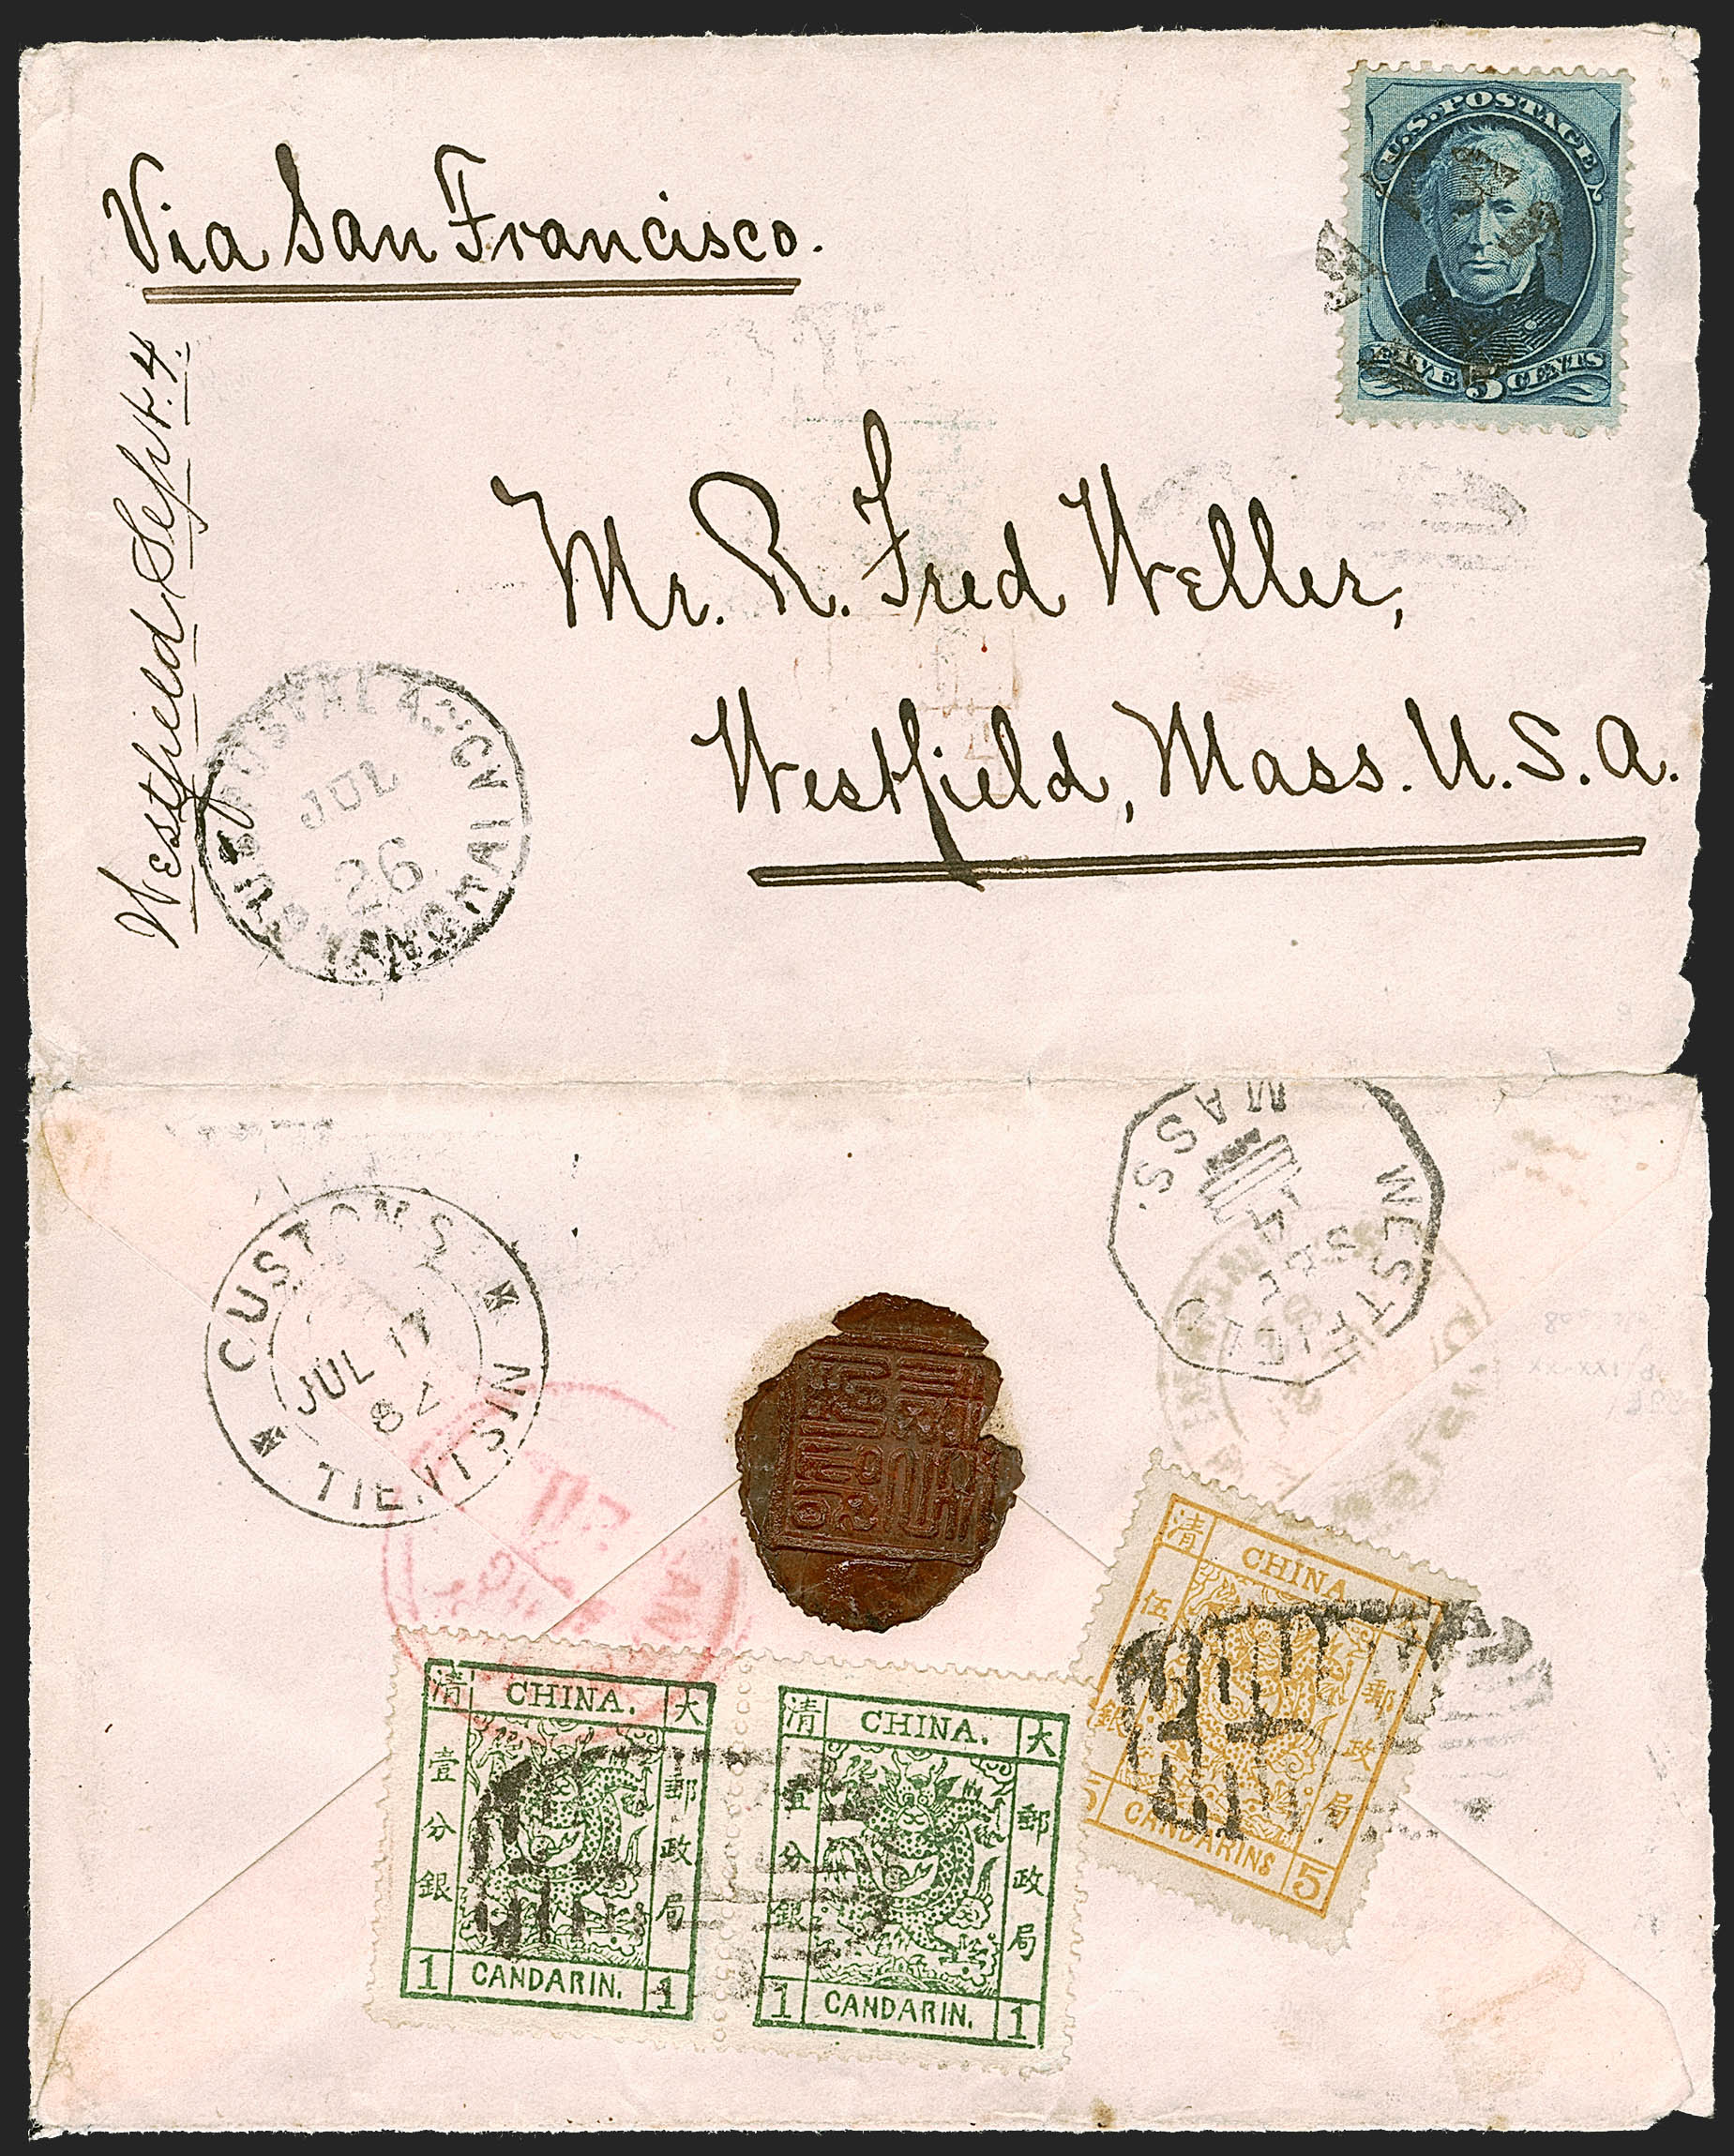 U.S. POSTAGE
FIVE 5 CENTS
Via San Francisco.
Westfield Sept. 4.
Mr. R. Fred Weller,
Westfield, Mass. U.S.A.
U.S. POSTAL AGCY
JUL
26
SHANGHAI
CUSTOMS
JUL 17
82
TIENTSIN
WESTFIELD
SEP
4
MASS.
清 CHINA. 大
壹分銀
郵政局
1 CANDARIN. 1
清 CHINA. 大
壹分銀
郵政局
1 CANDARIN. 1
清 CHINA.
伍 銀
郵政局
5 CANDARINS 5